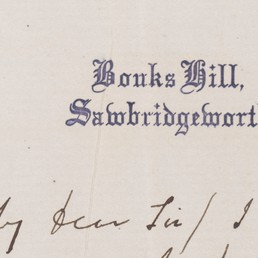 Bonks Hill,
Sawbridgewort
My dear Sir / I